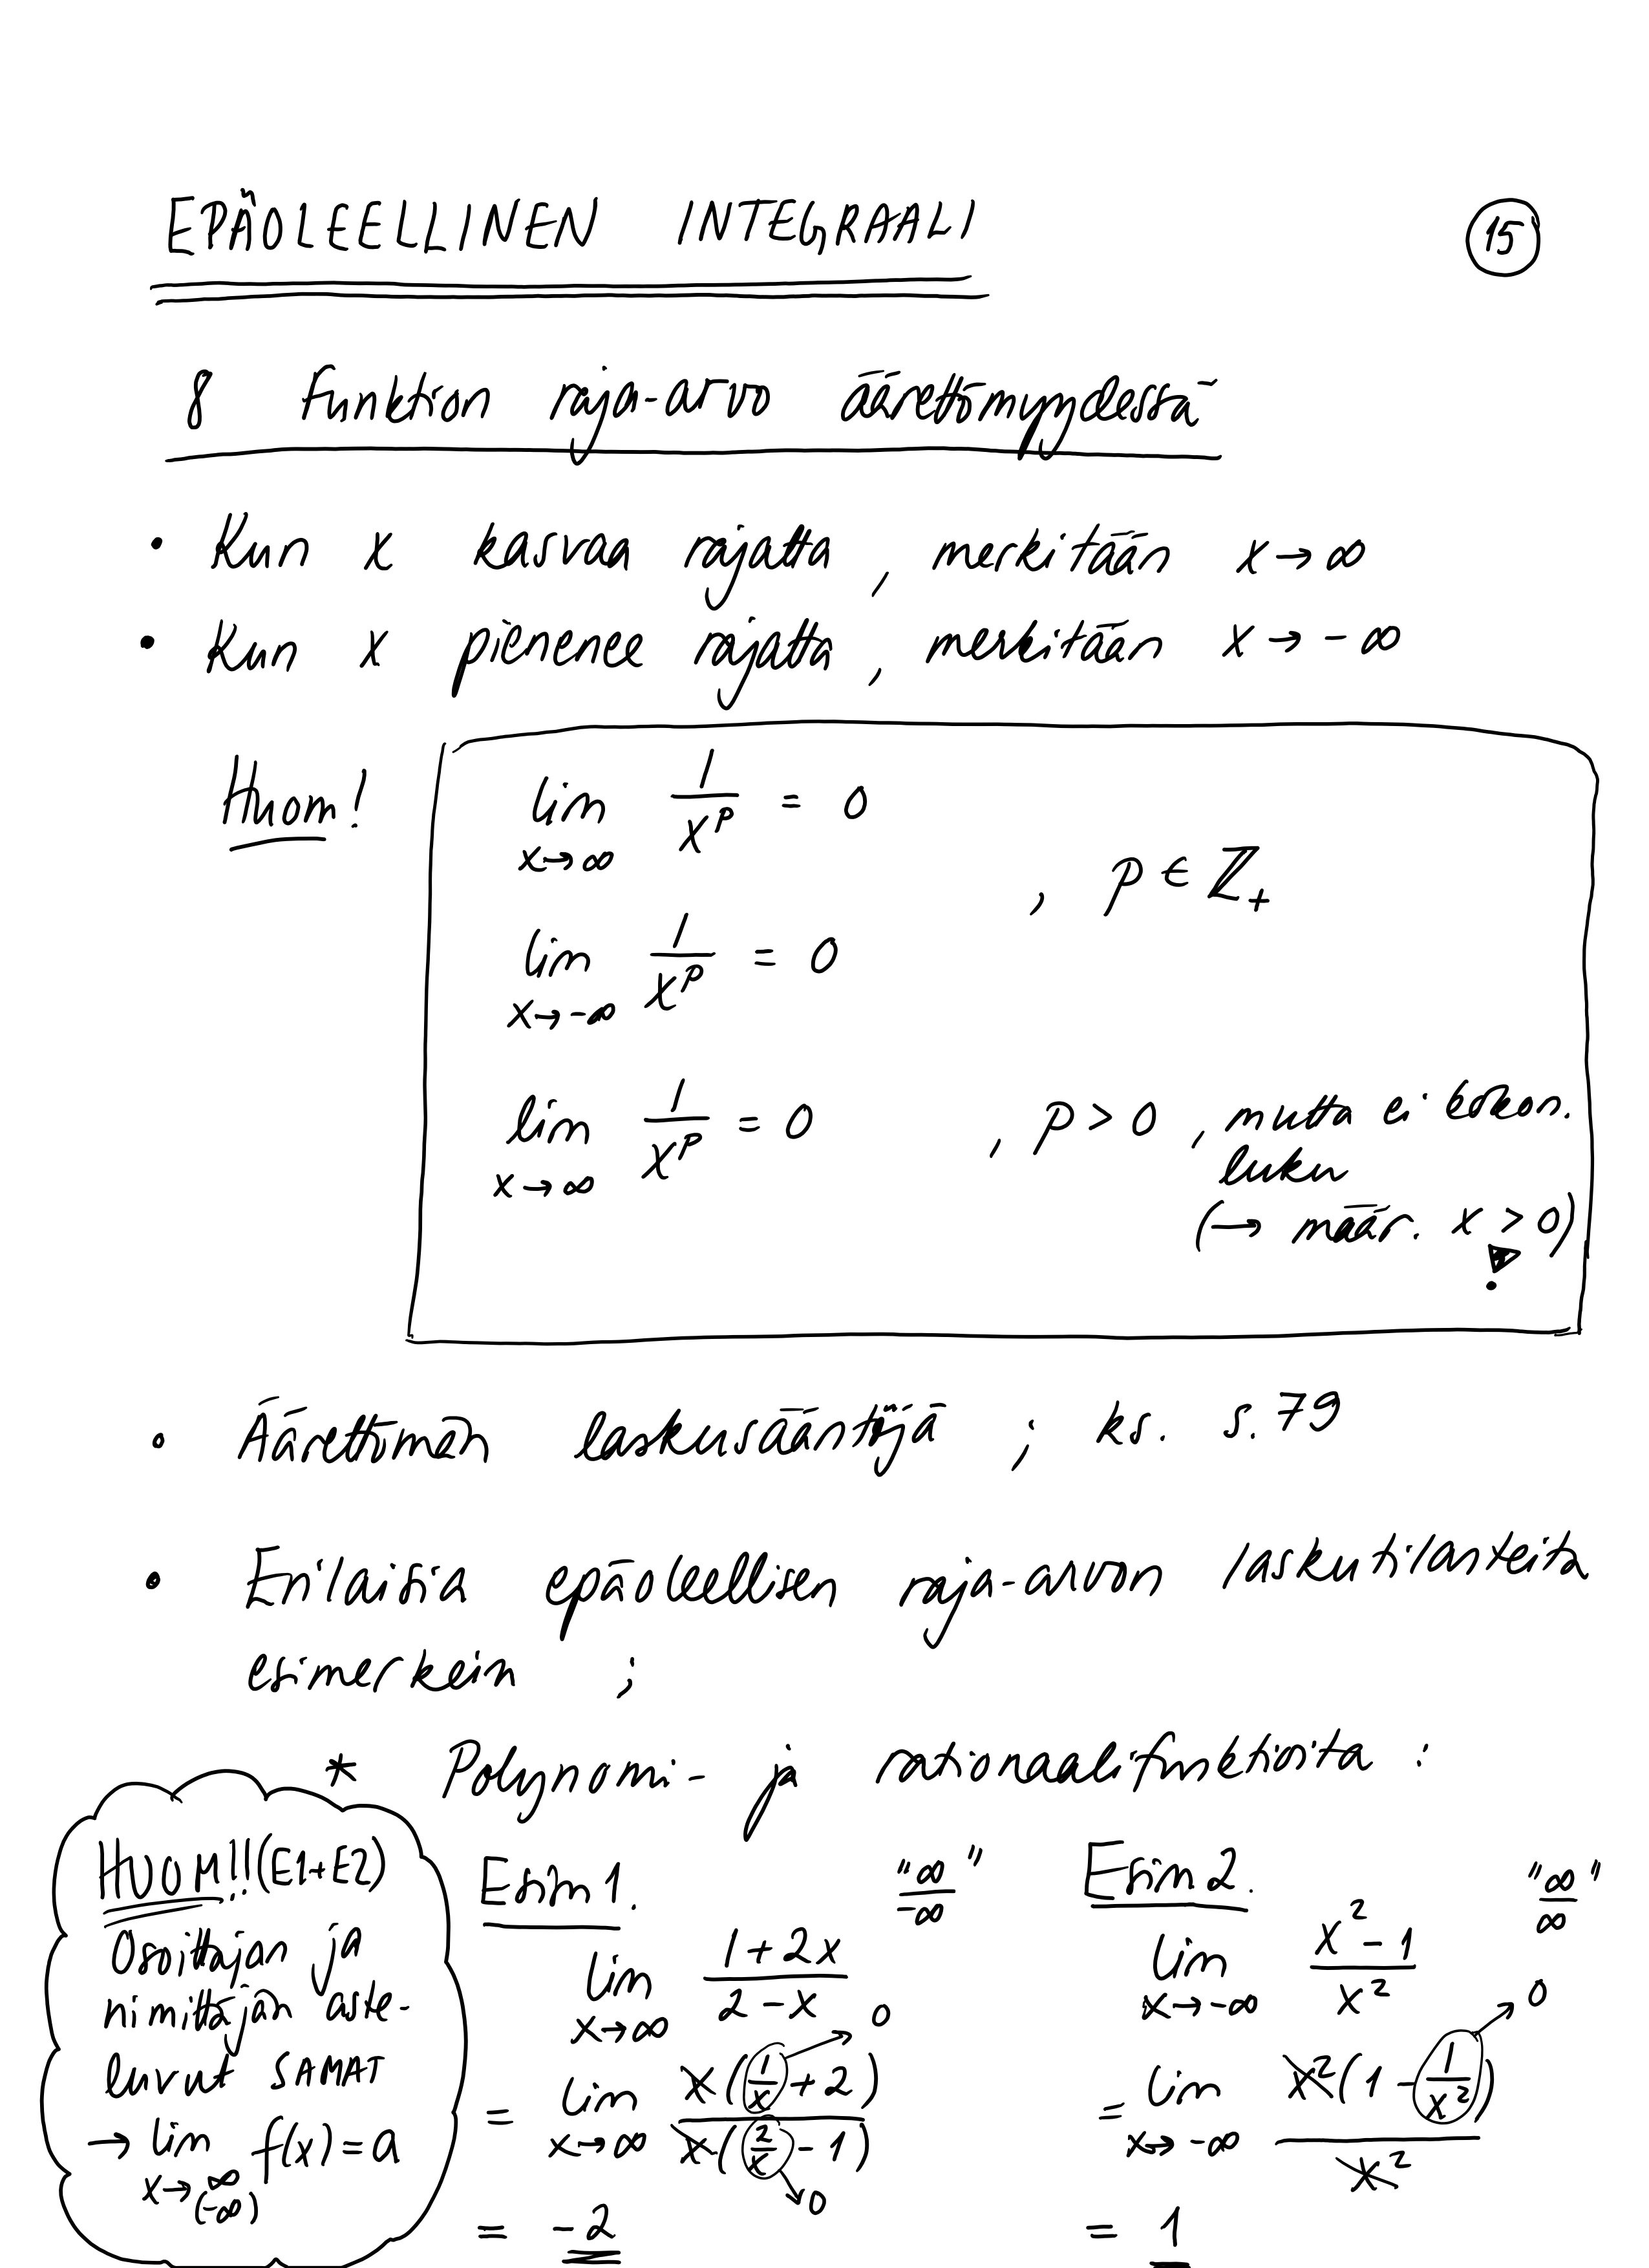 EPÄOLEELLINEN INTEGRAALI
15
8 Funktion raja-arvo äärettömyydessä
• Kun x kasvaa rajatta, merkitään x → ∞
• Kun x pienenee rajatta, merkitään x → -∞
Huom!
lim x→∞ 1/x^p = 0
, p ∈ ℤ₊
lim x→-∞ 1/x^p = 0
lim x→∞ 1/x^p = 0 , p > 0 , mutta ei kokon.
luku
(→ määr. x > 0)
!
• Äärettömän laskusääntöjä ; ks. s. 79
• Erilaisia epäoleellisen raja-arvon laskutilanteita
esimerkein ;
* Polynomi- ja rationaalifunktioita :
HUOM!!! (E1+E2)
Osoittajan ja
nimittäjän aste-
luvut SAMAT
→ lim x→∞ (-∞) f(x) = a
Esim 1. "∞/-∞"
lim x→∞ (1+2x)/(2-x)
= lim x→∞ x(1/x + 2)/x(2/x - 1) → 0 → 0
= -2
Esim 2. "∞/∞"
lim x→-∞ (x²-1)/x²
= lim x→-∞ x²(1 - 1/x²)/x² → 0
= 1